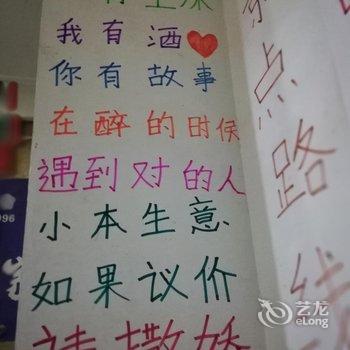 我有酒
你有故事
在醉的时候
遇到对的人
小本生意
如果议价
点
路
线
996
艺龙
eLong